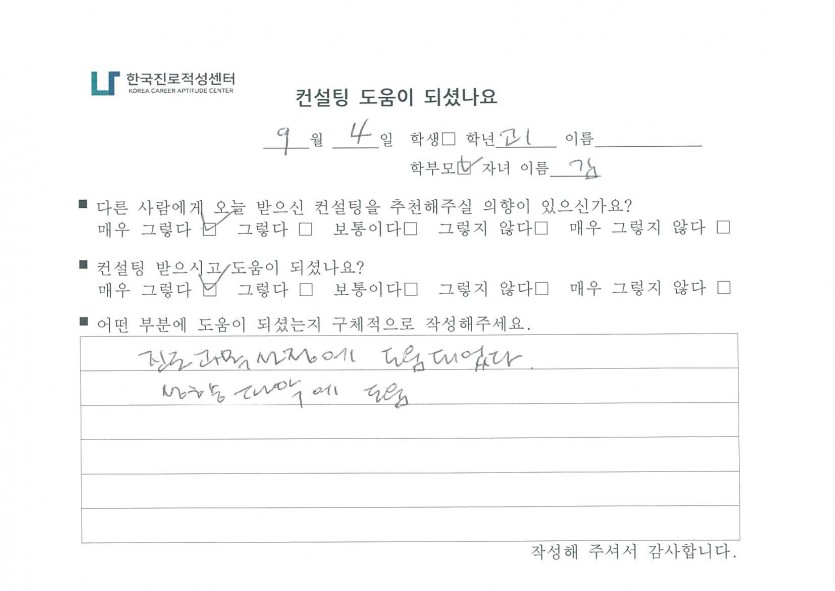 한국진로적성센터
KOREA CAREER APTITUDE CENTER
컨설팅 도움이 되셨나요
9월 4일 학생□ 학년 고1 이름
학부모☑ 자녀 이름 김
■ 다른 사람에게 오늘 받으신 컨설팅을 추천해주실 의향이 있으신가요?
매우 그렇다 ☑ 그렇다 □ 보통이다□ 그렇지 않다□ 매우 그렇지 않다 □
■ 컨설팅 받으시고 도움이 되셨나요?
매우 그렇다 ☑ 그렇다 □ 보통이다□ 그렇지 않다□ 매우 그렇지 않다 □
■ 어떤 부분에 도움이 되셨는지 구체적으로 작성해주세요.
진로 과목 선정에 도움되었다.
에 도움
작성해 주셔서 감사합니다.